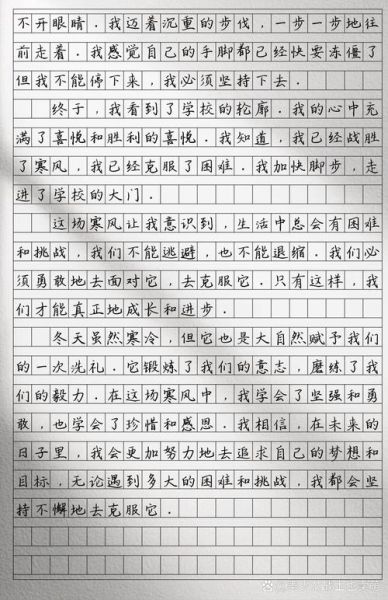 不开眼睛.我迈着沉重的步伐,一步一步地往
前走着.我感觉自己的手脚都已经快要冻僵了
但我不能停下来,我必须坚持下去.
终于,我看到了学校的轮廓.我的心中充
满了喜悦和胜利的喜悦.我知道,我已经战胜
了寒风,我已经克服了困难.我加快脚步,走
进了学校的大门.
这场寒风让我意识到,生活中总会有困难
和挑战,我们不能逃避,也不能退缩.我们必
须勇敢地去面对它,去克服它.只有这样,我
们才能真正地成长和进步.
冬天虽然寒冷,但它也是大自然赋予我们
的一次洗礼.它锻炼了我们的意志,磨练了我
们的毅力.在这场寒风中,我学会了坚强和勇
敢,也学会了珍惜和感恩.我相信,在未来的
日子里,我会更加努力地去追求自己的梦想和
目标,无论遇到多大的困难和挑战,我都会坚
持不懈地去克服它.